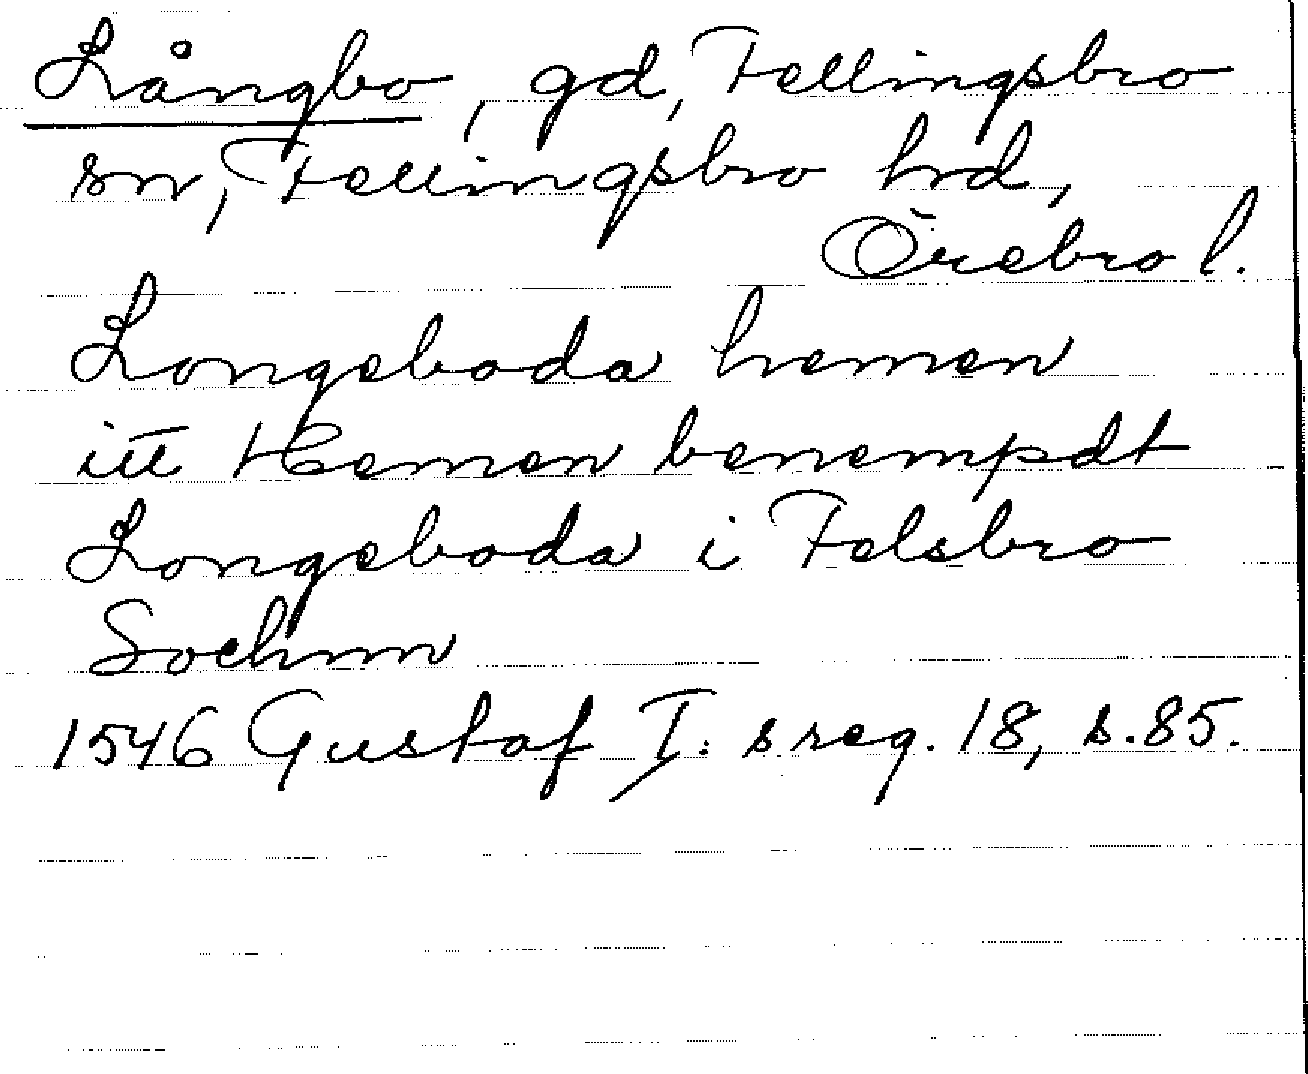 Långbo, gd, Fellingsbro
sn, Fellingsbro hrd,
Örebro l.
Longeboda hemen
itt Hemen benempdt
Longeboda i Felsbro
Sochnn
1546 Gustaf I:s reg. 18, s. 85.